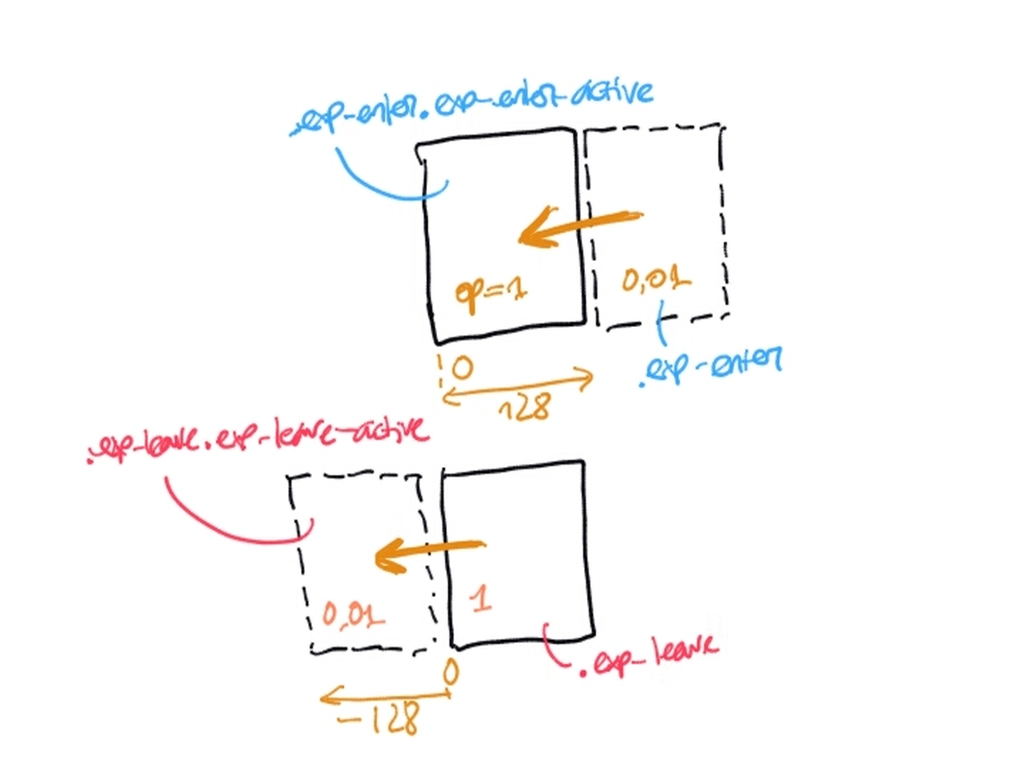 .exp-enter.exp-enter-active
op=1
0,01
.exp-enter
0
128
.exp-leave.exp-leave-active
0,01
1
.exp-leave
0
-128